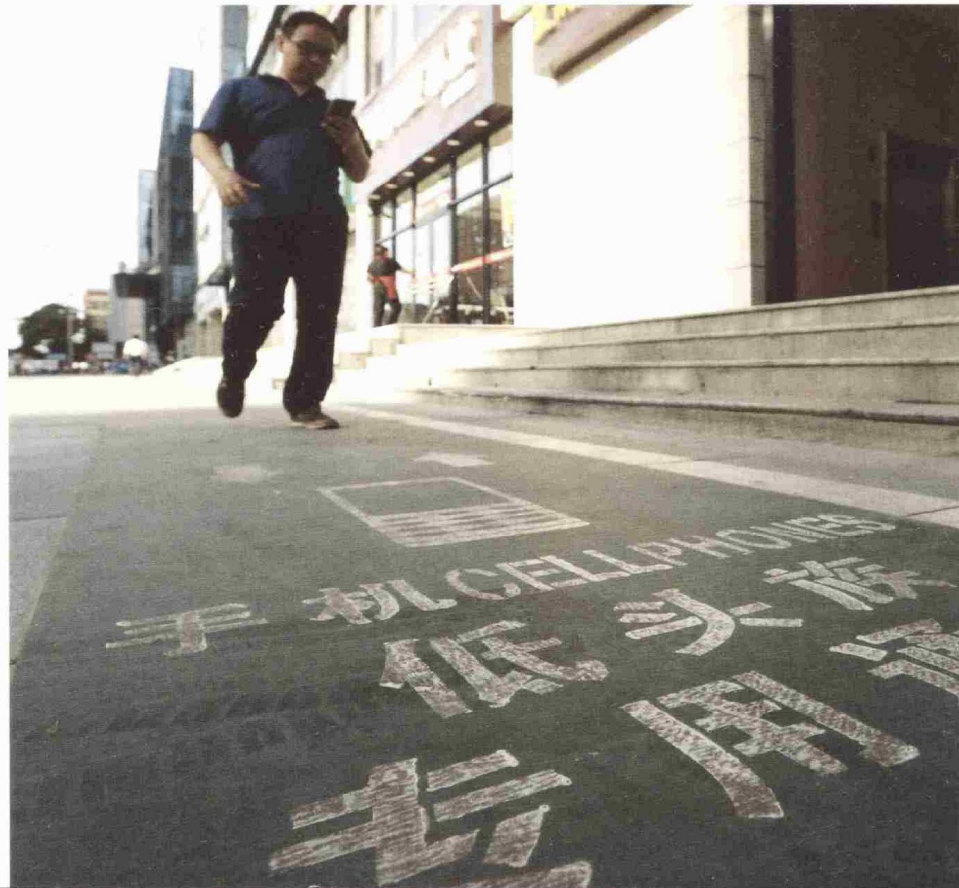 手机CELLPHONES
低头族
专用通